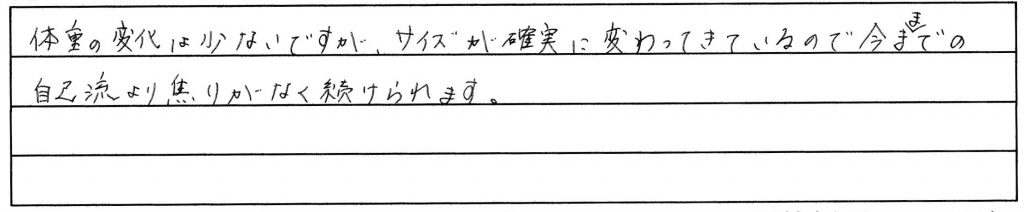 体重の変化は少ないですが、サイズが確実に変わってきているので今までの
自己流より焦りがなく続けられます。